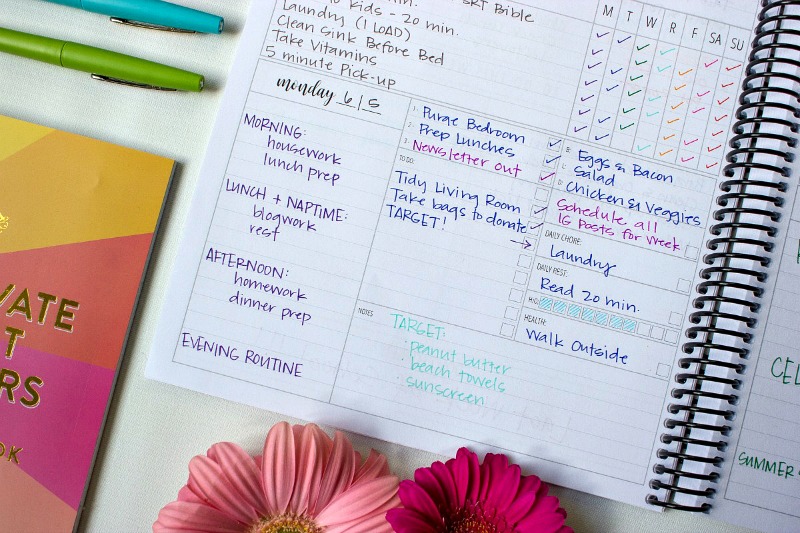 kids - 20 min.
SRT Bible
Laundry (1 LOAD)
Clean Sink Before Bed
Take Vitamins
5 minute Pick-up
M T W R F SA SU
monday 6/5
MORNING:
housework
lunch prep
LUNCH + NAPTIME:
blogwork
rest
AFTERNOON:
homework
dinner prep
EVENING ROUTINE
1. Purge Bedroom
2. Prep Lunches
3. Newsletter out
TO DO:
Tidy Living Room
Take bags to donate
TARGET!
B: Eggs & Bacon
L: Salad
D: Chicken & Veggies
Schedule all
IG Posts for Week
DAILY CHORE:
Laundry
DAILY REST:
Read 20 min.
H2O:
HEALTH:
Walk Outside
NOTES
TARGET:
· peanut butter
· beach towels
· sunscreen
VATE
T
RS
OK
CEL
SUMMER